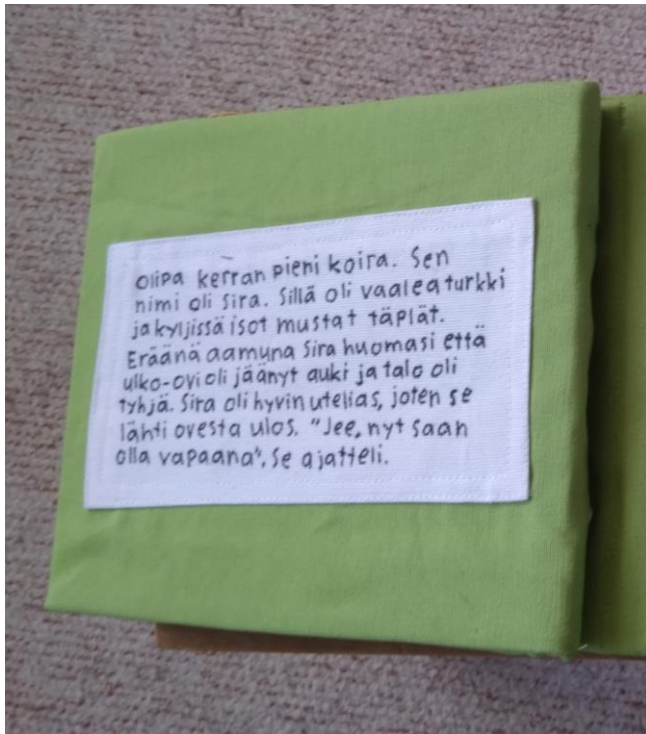 Olipa kerran pieni koira. Sen
nimi oli Sira. Sillä oli vaalea turkki
ja kyljissä isot mustat täplät.
Eräänä aamuna Sira huomasi että
ulko-ovi oli jäänyt auki ja talo oli
tyhjä. Sira oli hyvin utelias, joten se
lähti ovesta ulos. "Jee, nyt saan
olla vapaana", se ajatteli.